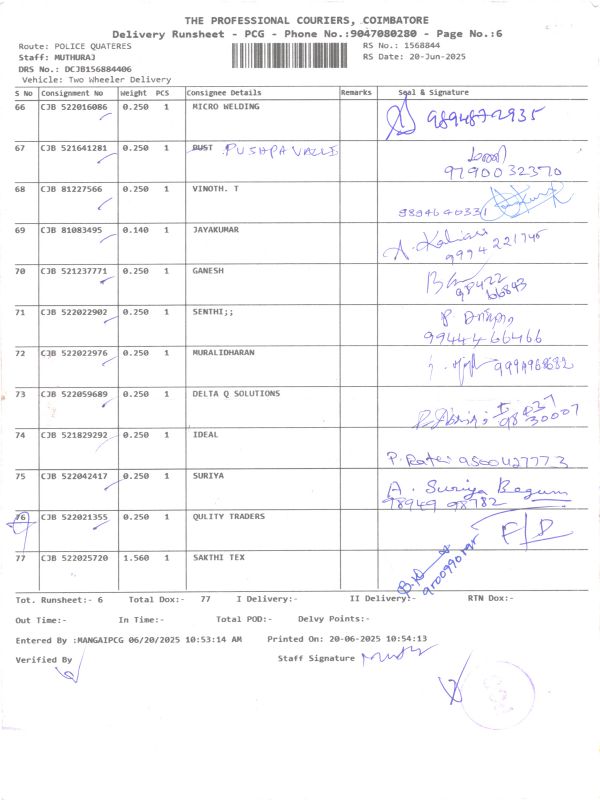 THE PROFESSIONAL COURIERS, COIMBATORE
Delivery Runsheet - PCG - Phone No.:9047080280 - Page No.:6
Route: POLICE QUATERES RS No.: 1568844
Staff: MUTHURAJ RS Date: 20-Jun-2025
DRS No.: DCJB156884406
Vehicle: Two Wheeler Delivery
S No Consignment No Weight PCS Consignee Details Remarks Seal & Signature
66 CJB 522016086 0.250 1 MICRO WELDING 9894872935
67 CJB 521641281 0.250 1 DUST PUSHPAVALLI
9790032370
68 CJB 81227566 0.250 1 VINOTH. T
9894640331
69 CJB 81083495 0.140 1 JAYAKUMAR
9994221745
70 CJB 521237771 0.250 1 GANESH
98422
66843
71 CJB 522022902 0.250 1 SENTHI;;
9944466466
72 CJB 522022976 0.250 1 MURALIDHARAN
73 CJB 522059689 0.250 1 DELTA Q SOLUTIONS
74 CJB 521829292 0.250 1 IDEAL
9500427773
75 CJB 522042417 0.250 1 SURIYA
A. Suriya Begum
98949 98782
76 CJB 522021355 0.250 1 QULITY TRADERS F/D
77 CJB 522025720 1.560 1 SAKTHI TEX
Tot. Runsheet:- 6 Total Dox:- 77 I Delivery:- II Delivery:- RTN Dox:-
Out Time:- In Time:- Total POD:- Delvy Points:-
Entered By :MANGAIPCG 06/20/2025 10:53:14 AM Printed On: 20-06-2025 10:54:13
Verified By Staff Signature